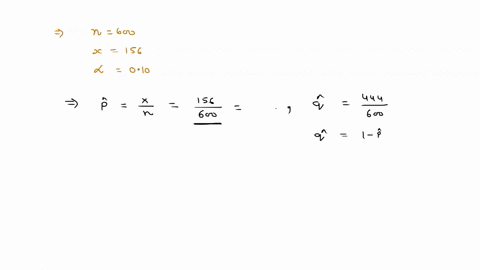 ⇒ n = 600
x = 156
α = 0.10
⇒ p̂ = x/n = 156/600 = . , q̂ = 444/600
q̂ = 1 - p̂